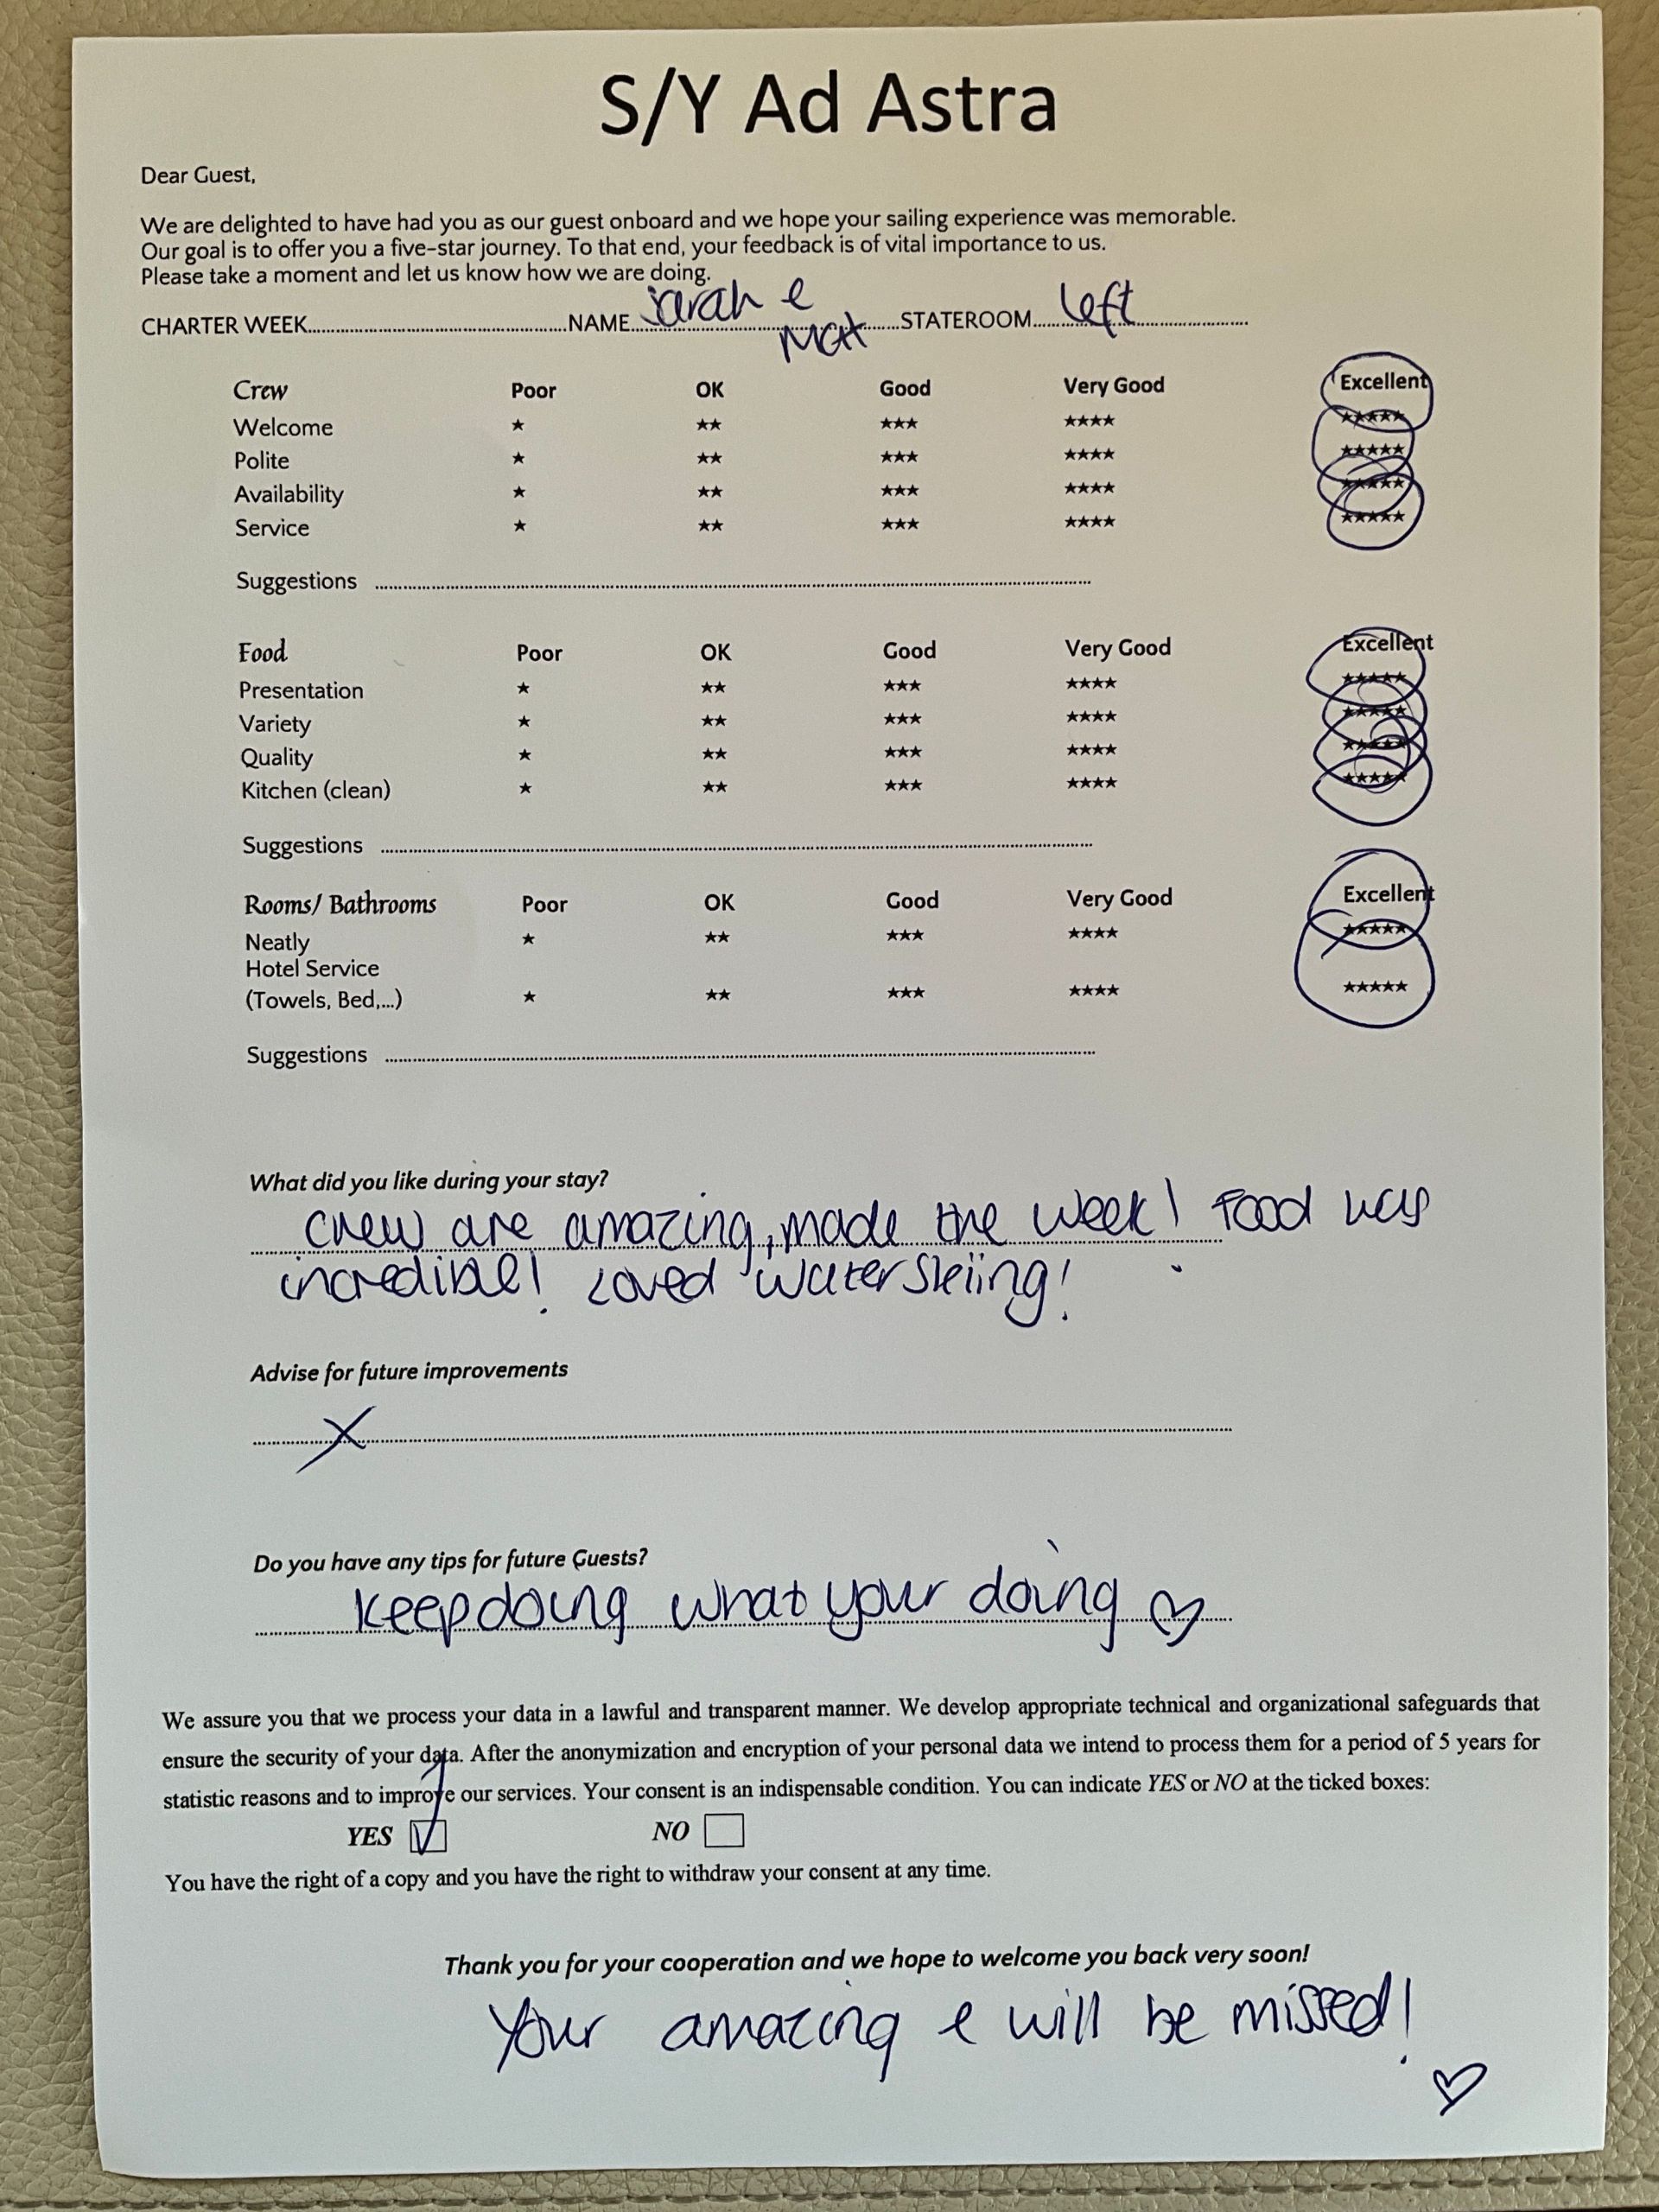 S/Y Ad Astra
Dear Guest,
We are delighted to have had you as our guest onboard and we hope your sailing experience was memorable.
Our goal is to offer you a five-star journey. To that end, your feedback is of vital importance to us.
Please take a moment and let us know how we are doing.
CHARTER WEEK..........NAME..Sarah e Matt..STATEROOM..Left..........
Crew Poor OK Good Very Good Excellent
Welcome ★ ★★ ★★★ ★★★★ ★★★★★
Polite ★ ★★ ★★★ ★★★★ ★★★★★
Availability ★ ★★ ★★★ ★★★★ ★★★★★
Service ★ ★★ ★★★ ★★★★ ★★★★★
Suggestions ..........
Food Poor OK Good Very Good Excellent
Presentation ★ ★★ ★★★ ★★★★ ★★★★★
Variety ★ ★★ ★★★ ★★★★ ★★★★★
Quality ★ ★★ ★★★ ★★★★ ★★★★★
Kitchen (clean) ★ ★★ ★★★ ★★★★ ★★★★★
Suggestions ..........
Rooms/ Bathrooms Poor OK Good Very Good Excellent
Neatly ★ ★★ ★★★ ★★★★ ★★★★★
Hotel Service
(Towels, Bed,...) ★ ★★ ★★★ ★★★★ ★★★★★
Suggestions ..........
What did you like during your stay?
crew are amazing, made the week! Food was
incredible! Loved water skiing!
Advise for future improvements
X
Do you have any tips for future Guests?
keep doing what your doing ♡
We assure you that we process your data in a lawful and transparent manner. We develop appropriate technical and organizational safeguards that
ensure the security of your data. After the anonymization and encryption of your personal data we intend to process them for a period of 5 years for
statistic reasons and to improve our services. Your consent is an indispensable condition. You can indicate YES or NO at the ticked boxes:
YES ☑ NO ☐
You have the right of a copy and you have the right to withdraw your consent at any time.
Thank you for your cooperation and we hope to welcome you back very soon!
Your amazing e will be missed!
♡